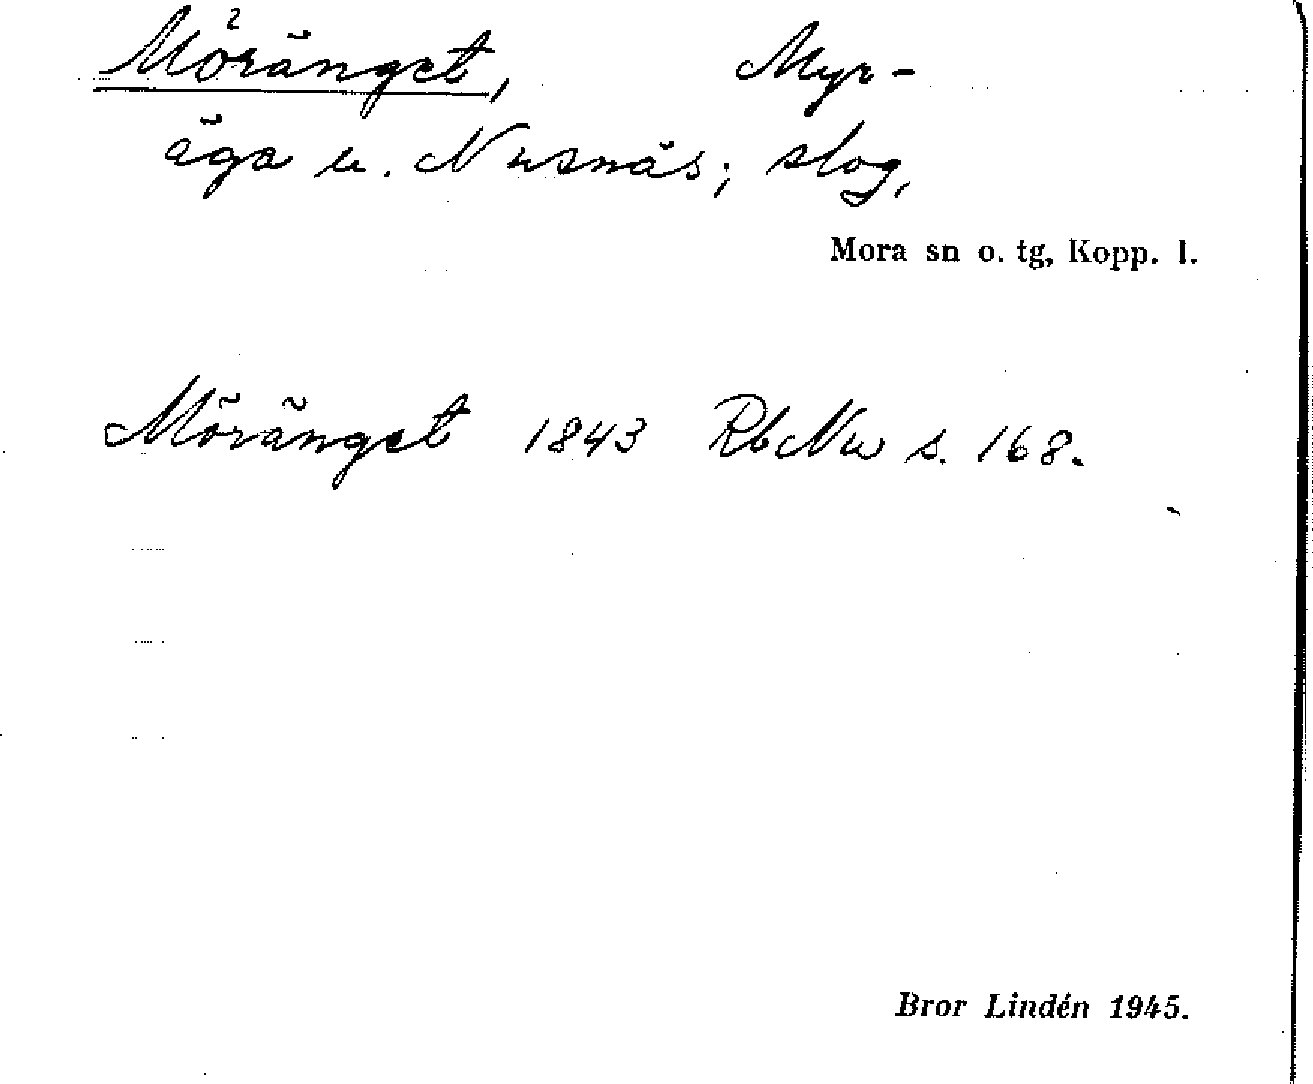 Möränget, Myr-
äga u. Nusnäs; slog.
Mora sn o. tg, Kopp. l.
Möränget 1843 RbNu s. 168.
Bror Lindén 1945.